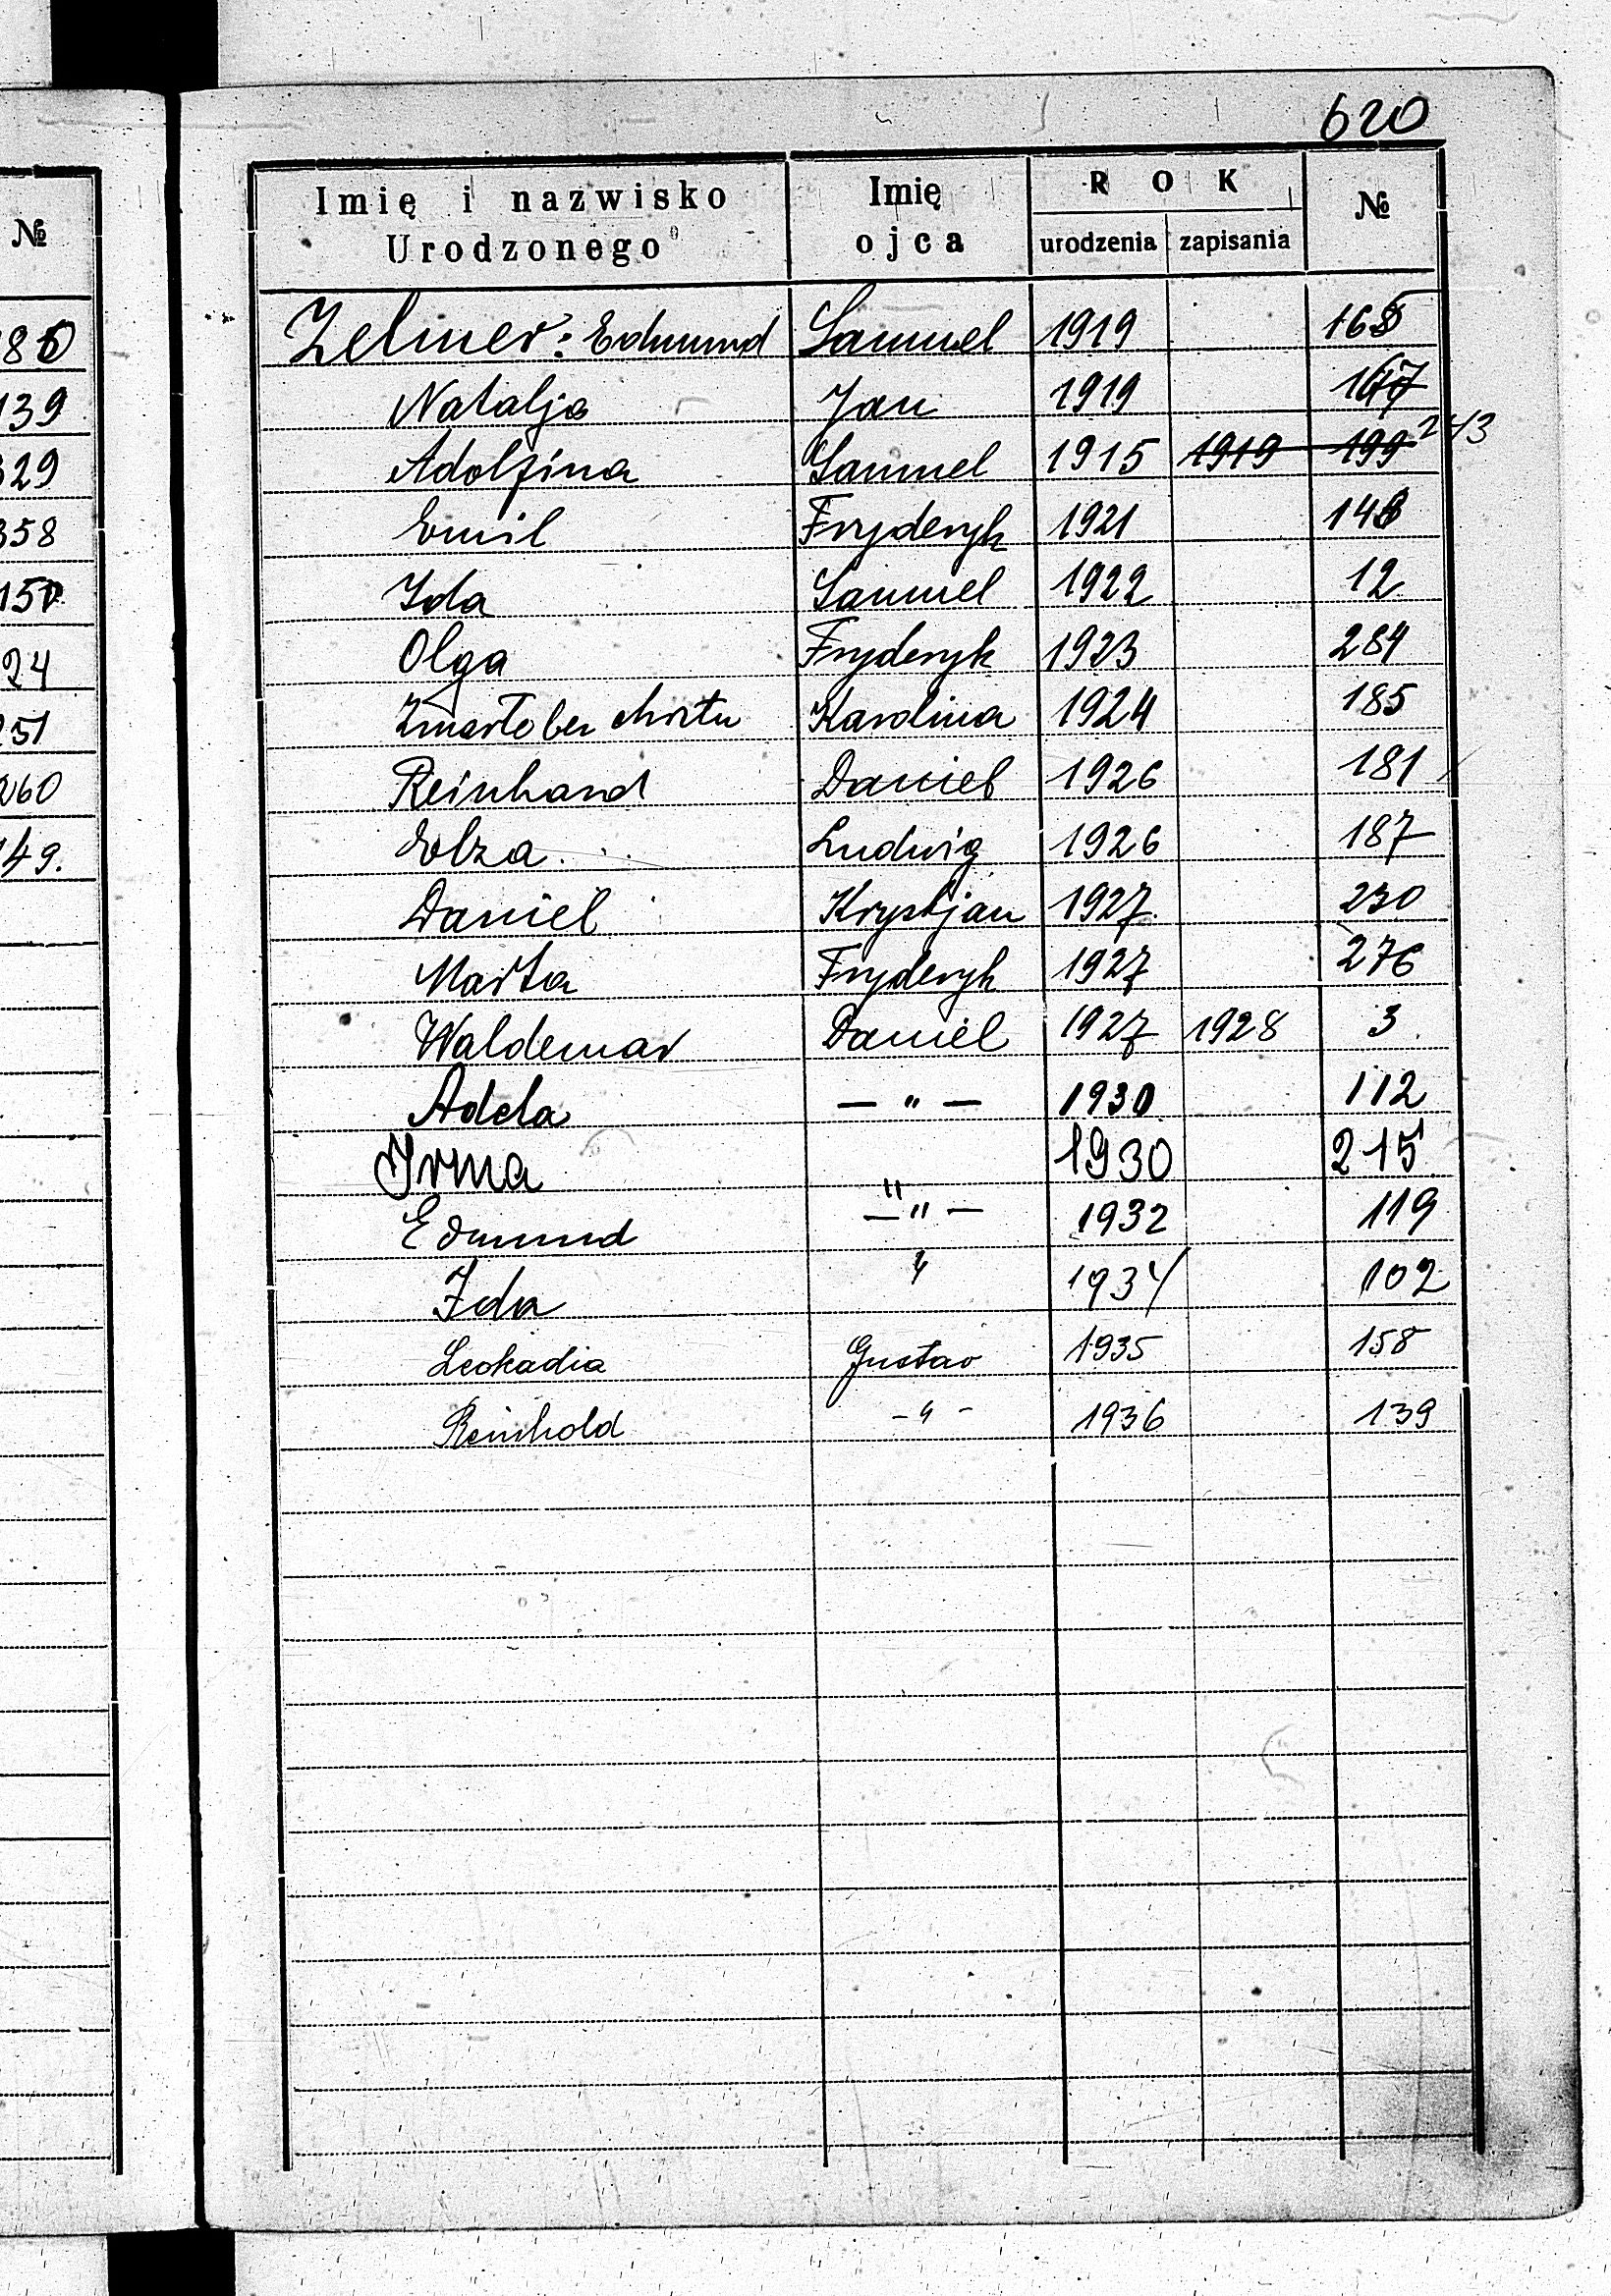 620
№
Imię i nazwisko Urodzonego
Imię ojca
ROK
urodzenia zapisania
№
Zelmer: Edmund Samuel 1919 165
Natalja Jan 1919 167
Adolfina Samuel 1915 1919 199 243
Emil Fryderyk 1921 148
Ida Samuel 1922 12
Olga Fryderyk 1923 284
Zmarło bez chrztu Karolina 1924 185
Reinhard Daniel 1926 181
Elza Ludwig 1926 187
Daniel Krystjan 1927 230
Marta Fryderyk 1927 276
Waldemar Daniel 1927 1928 3
Adela — " — 1930 112
Irma " 1930 215
Edmund — " — 1932 119
Ida " 1934 102
Leokadia Gustav 1935 158
Reinhold - " - 1936 139
139
329
358
24
251
260
149.